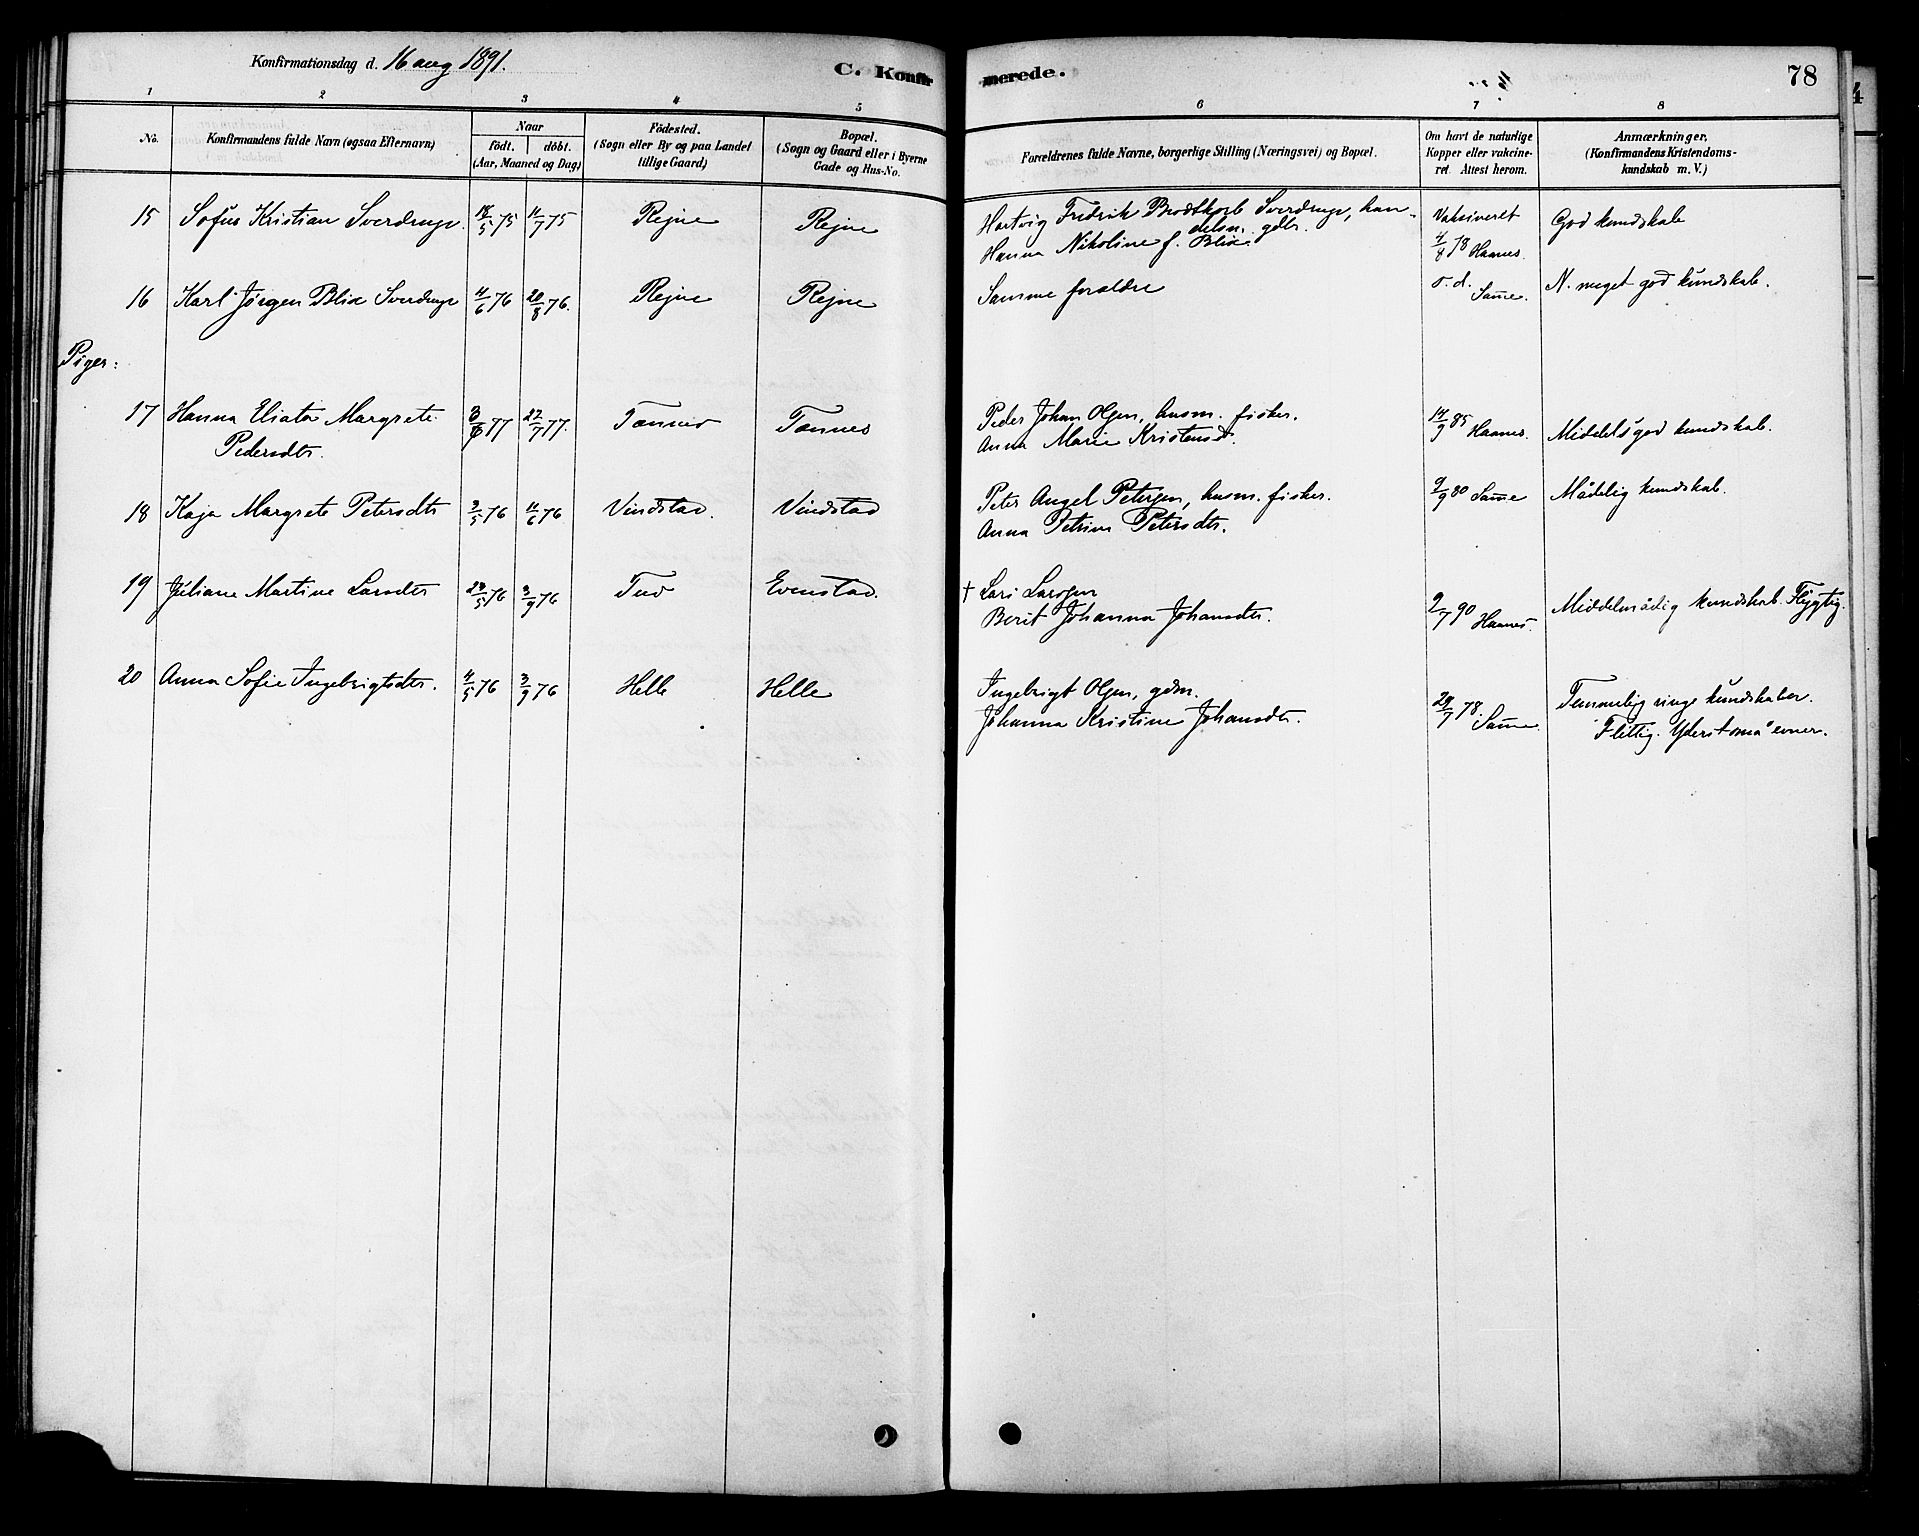 Konfirmationsdag d. 16 aug 1891.
C. Konfirmerede.
78
1 2 3 4 5 6 7 8
No.
Konfirmandens fulde Navn (ogsaa Efternavn)
Naar
födt. döbt.
(Aar, Maaned og Dag)
Födested.
(Sogn eller By og paa Landet
tillige Gaard)
Bopæl.
(Sogn og Gaard eller i Byerne
Gade og Hus-No.
Forældrenes fulde Navne, borgerlige Stilling (Næringsvei) og Bopæl.
Om havt de naturlige
Kopper eller vakcine-
ret. Attest herom.
Anmærkninger,
(Konfirmandens Kristendoms-
kundskab m. V.)
15 Sofus Kristian Sverdrup. 75 11/7 75 Rejne Rejne Hartvig Fredrik Brodtkorb Sverdrup, han-
delsm. gdbr.
Hanna Nikoline f. Blix.
Vaksineret
4/8 78 Haanes.
God kundskab
16 Karl Jørgen Blix Sverdrup 11/6 76 20/8 76. Rejne Rejne Samme forældre
s. d. Samme.
N. meget god kundskab.
Piger:
17 Hanna Margrete
Pedersdtr.
77 22/7 77. Tennes Tennes Peder Johan Olsen, husm. fisker.
Anna Marie Kristensd.
14/9 85 Haanes.
Middels god kundskab.
18 Kaja Margrete Petersdtr 3/5 76 11/6 76 Vindstad. Vindstad Peter Angel Petersen, husm. fisker.
Anna Petrine Petersdtr.
9/9 80 Samme
Mådelig kundskab.
19 Juliane Martine Larsdtr 23/5 76 3/9 76 Tuv Evenstad. † Lars Larsen
Berit Johanna Johansdtr.
2/7 90 Haanes.
Middelmådig kundskab. Flygtig.
20 Anna Sofie Ingebrigtsdtr. 4/5 76 3/9 76 Helle Helle Ingebrigt Olsen, gdm.
Johanna Kristine Johansdtr.
29/7 78. Samme
Temmelig ringe kundskaber.
Flittig. Yderst små evner.